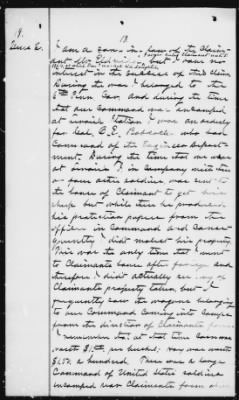 19.
13
I am a son-in-law of the Claim-
ant but I have no
interest in the success of this Claim
During the war I belonged to the
6th Cav. and during the time
that our Command was encamped
at I was an orderly
for Col. C. E. who had
Command of the Engineer Depart-
ment. During the time that we were
at I in Company with two
or four other soldiers was sent to
the house of Claimant to get some
sheep but while there he produced
his protection papers from the
officer in Command and Conse-
quently I didn't molest his property.
This was the only time that I went
to Claimants house after forage and
therefore I didn't actually see any of
Claimants property taken but I
frequently saw the wagons belonging
to our Command Coming into Camp
from the direction of Claimants
I remember that at that time Corn was
worth per bushel; hay was worth
a hundred. There was a large
Command of United States soldiers
encamped near Claimants farm